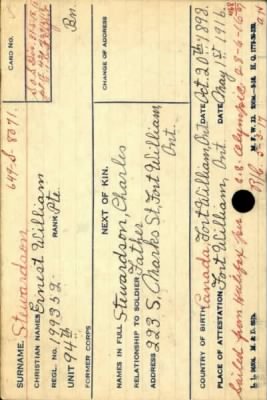 649-S-8071.
SURNAME. Stewardson
CARD NO.
CHRISTIAN NAMES Ernest William
REGL. No. 199352 RANK Pte.
UNIT 94th Bn.
FORMER CORPS
NEXT OF KIN.
CHANGE OF ADDRESS
NAMES IN FULL Stewardson, Charles
RELATIONSHIP TO SOLDIER Father
ADDRESS 223 S. Marks St, Fort William,
Ont.
COUNTRY OF BIRTH Canada, Fort William, Ont. DATE Oct. 20th 1898.
PLACE OF ATTESTATION Fort William, Ont. DATE May 1st 1916.
Sailed from Halifax per S.S. Olympic 28-6-16